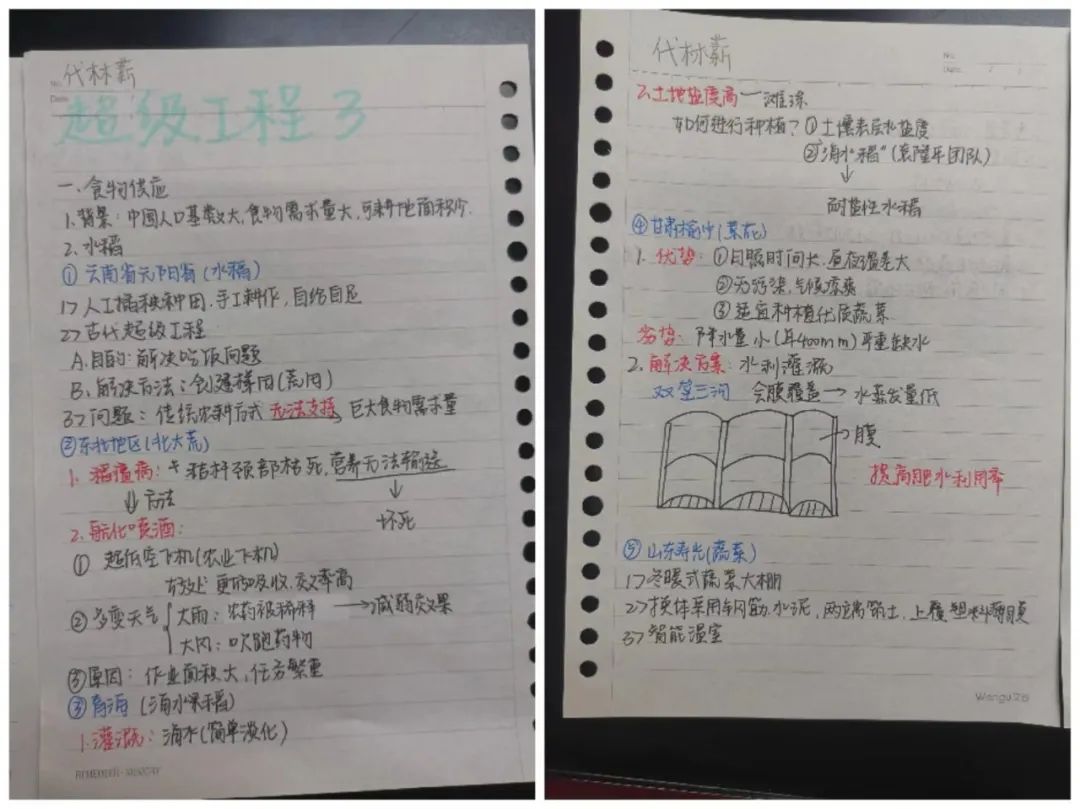 No.
Date.
代林薪
超级工程3
一、食物供应
1.背景：中国人口基数大，食物需求量大，可耕地面积少.
2.水稻
①云南省元阳省（水稻）
1>人工插秧种田.手工耕作，自给自足
2>古代超级工程
A.目的：解决吃饭问题
B.解决方法：创建梯田（荒田）
3>问题：传统农耕方式无法支持巨大食物需求量
②东北地区（北大荒）
1.稻瘟病：秸秆颈部枯死，营养无法输送
↓方法 ↓
坏死
2.航化喷洒：
①超低空飞机（农业飞机）
好处 更好吸收.效率高
②多变天气 大雨：农药被稀释 →减弱效果
大风：吹跑药物
③原因：作业面积大，任务繁重
③青海（海水稻）
1.灌溉：海水（简单淡化）
REMEMBER·MEMORY
No.
Date. / /
代林薪
2.土地盐度高—滩涂
如何进行种植？①土壤表层水盐度
②海水"稻"（袁隆平团队）
↓
耐盐性水稻
④甘肃榆中（菜花）
1.优势：①日照时间大.昼夜温差大
②无污染，气候凉爽
③适宜种植优质蔬菜
劣势：降水量小（年400mm）严重缺水
2.解决方案：水利灌溉
双垄三沟 全膜覆盖→水蒸发量低
→膜
提高肥水利用率
⑤山东寿光（蔬菜）
1>冬暖式蔬菜大棚
2>换体采用钢筋.水泥，两端筑土，上覆塑料薄膜
3>智能温室
Wangu 26